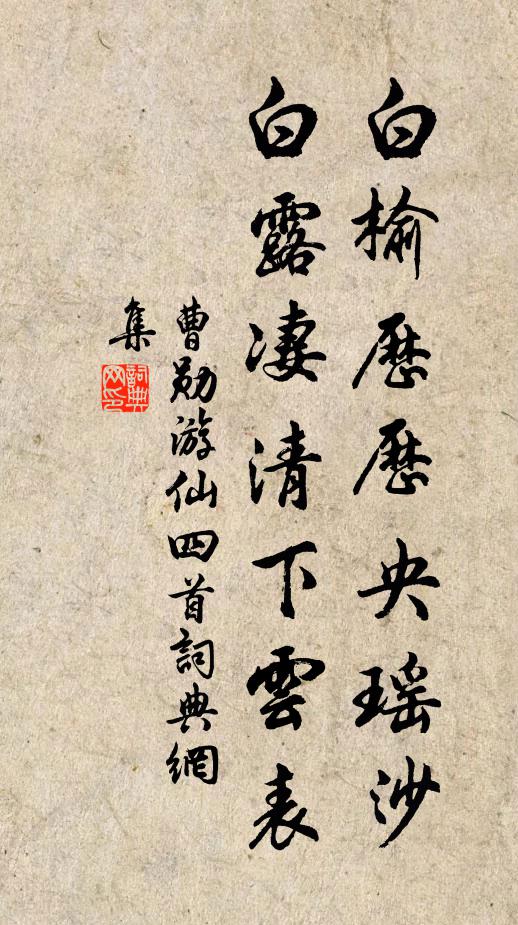 白榆歷歷央瑶沙
白露凄清下雲表
曹勛游仙四首詞典網
集
詞典網印